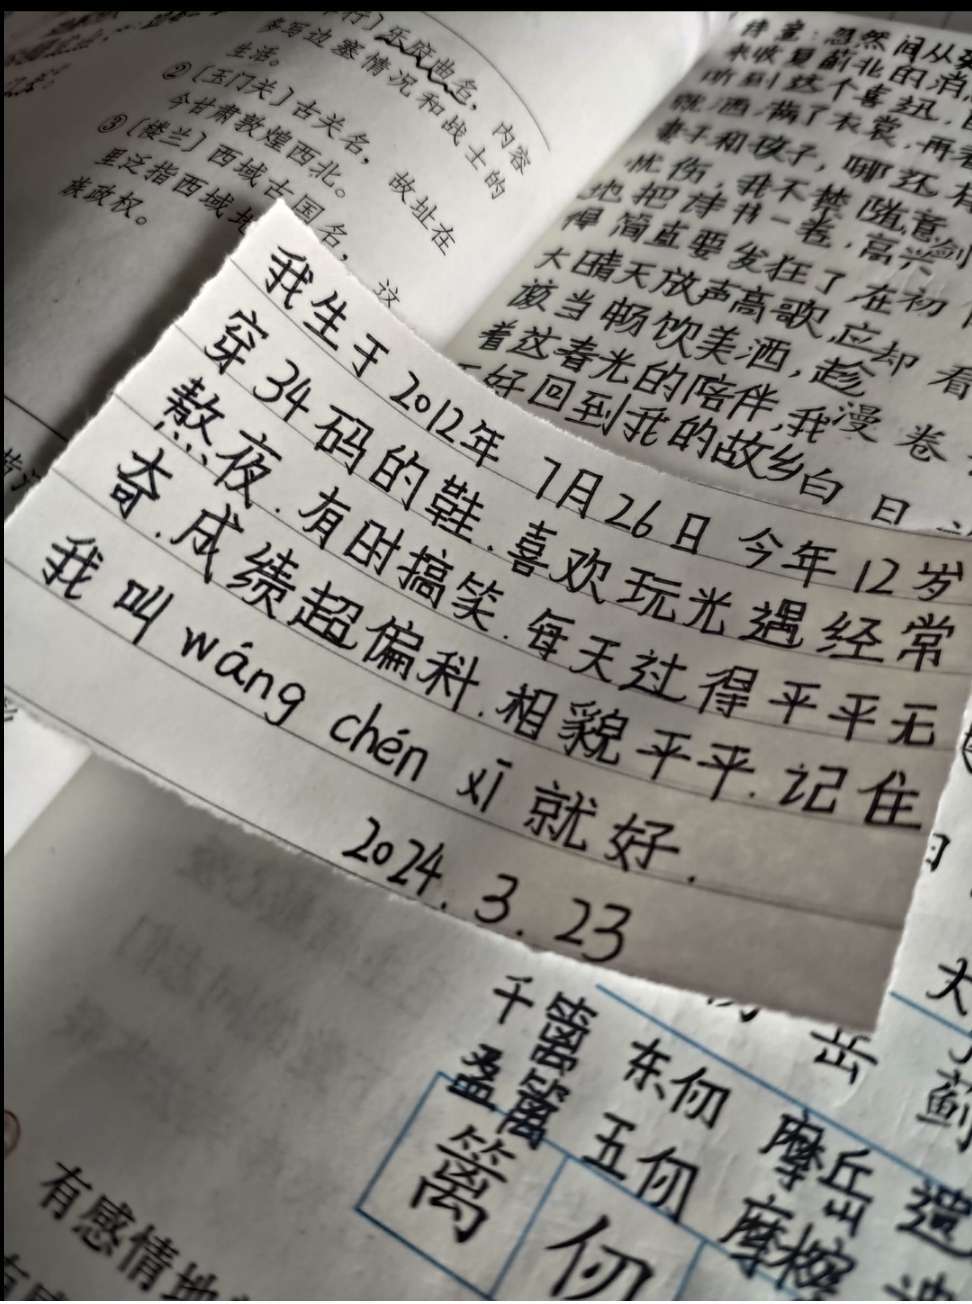 乐府曲名，内容
多写边塞情况和战士的
生活。
②〔玉门关〕古关名，故址在
今甘肃敦煌西北。
③〔楼兰〕西域古国名，这
里泛指西域地
族政权。
诗意：忽然间从
来收复蓟北的消
听到这个喜讯，
就洒满了衣裳，再看
妻子和孩子，哪还有
忧伤，我不禁随意
地把诗书一卷，高兴
得简直要发狂了，在初
大晴天放声高歌，应
该当畅饮美酒，趁
着这春光的陪伴，我
好回到我的故乡
却看
漫卷
白日
我生于2012年7月26日今年12岁
穿34码的鞋.喜欢玩光遇经常
熬夜.有时搞笑.每天过得平平无
奇.成绩超偏科.相貌平平.记住
我叫wáng chén xī就好.
2024.3.23
千 篱 东仞 岳
盈 篱 五仞 摩丘
摩 遗
蓟
篱 仞
有感情地